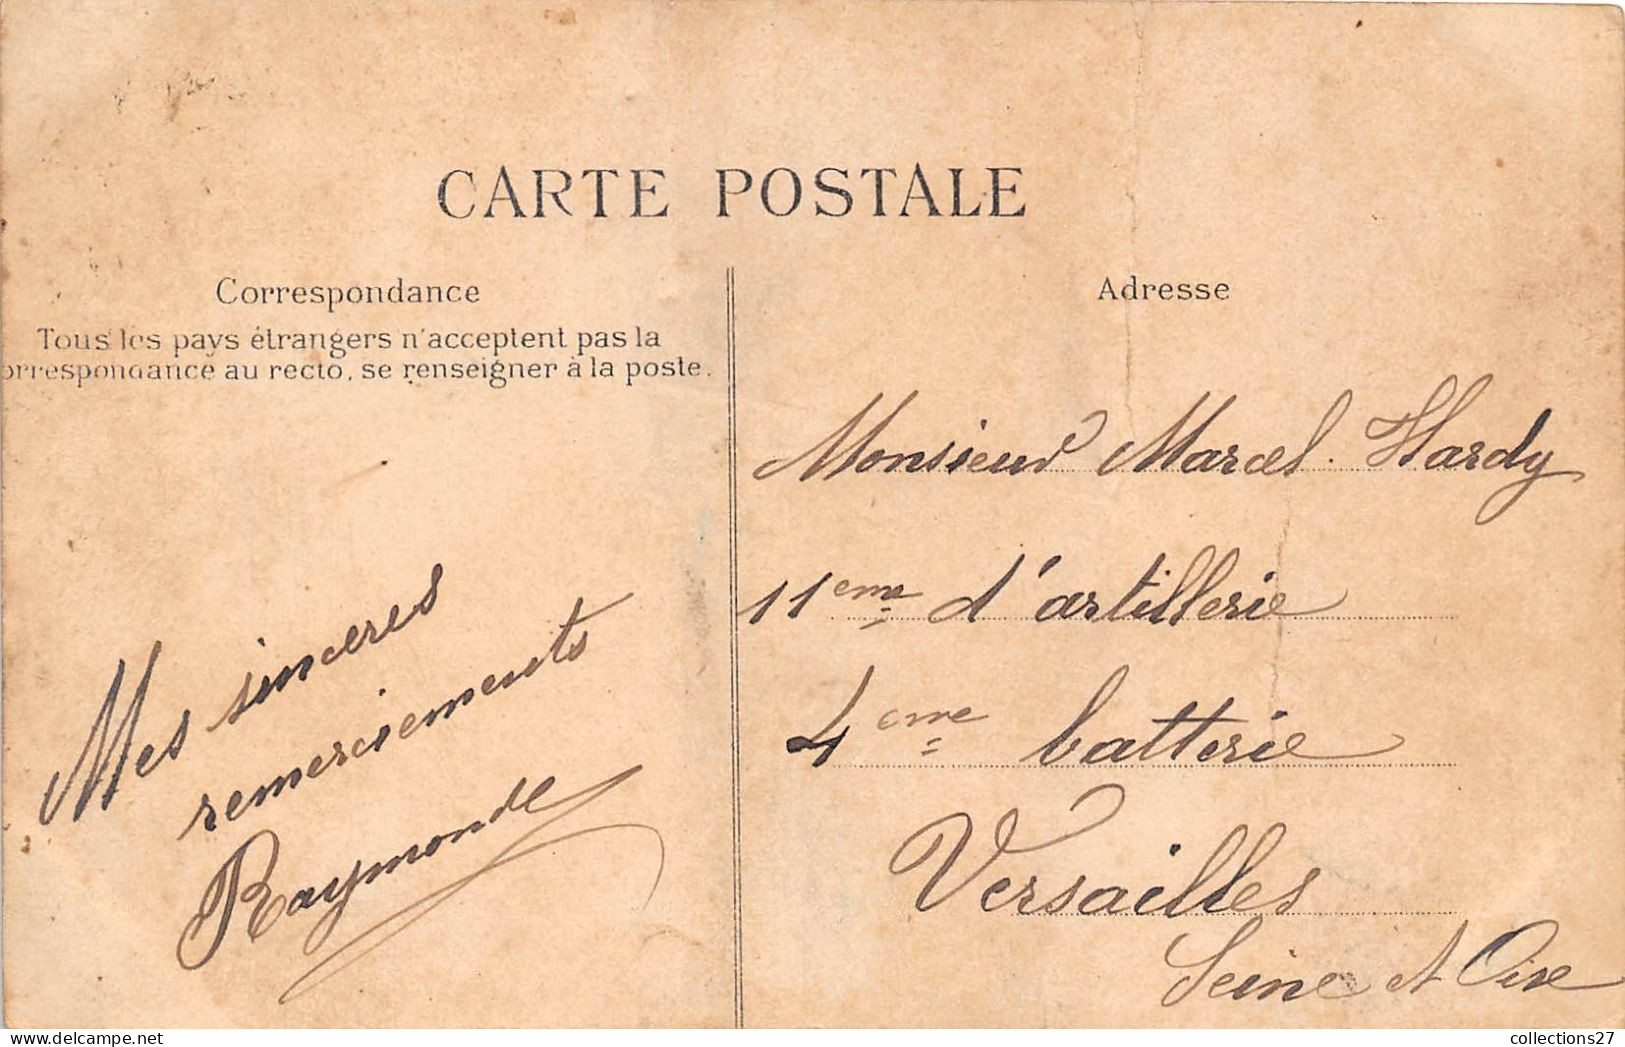 CARTE POSTALE
Correspondance
Tous les pays étrangers n'acceptent pas la
orrespondance au recto, se renseigner à la poste.
Mes sinceres
remerciements
Raymonde
Adresse
Monsieur Marcel Hardy
11eme d'artillerie
4eme batterie
Versailles
Seine et Oise
collections27